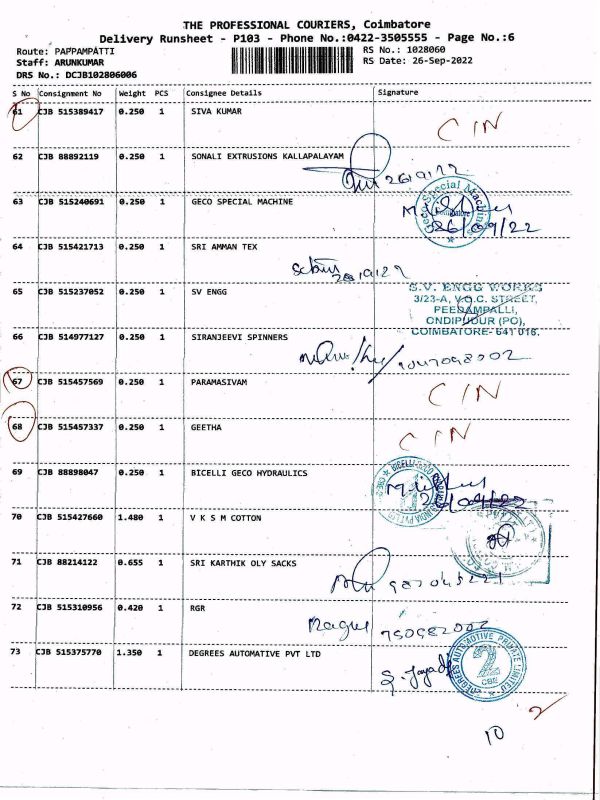 THE PROFESSIONAL COURIERS, Coimbatore
Delivery Runsheet - P103 - Phone No.:0422-3505555 - Page No.:6
Route: PAPPAMPATTI RS No.: 1028060
Staff: ARUNKUMAR RS Date: 26-Sep-2022
DRS No.: DCJB102806006
S No Consignment No Weight PCS Consignee Details Signature
61 CJB 515389417 0.250 1 SIVA KUMAR CIN
62 CJB 88892119 0.250 1 SONALI EXTRUSIONS KALLAPALAYAM
63 CJB 515240691 0.250 1 GECO SPECIAL MACHINE
Geco Special Machines
Coimbatore
26/09/22
64 CJB 515421713 0.250 1 SRI AMMAN TEX
65 CJB 515237052 0.250 1 SV ENGG S.V. ENGG WORKS
3/23-A, V.O.C. STREET,
PEEDAMPALLI,
ONDIPUDUR (PO),
COIMBATORE- 641 016.
66 CJB 514977127 0.250 1 SIRANJEEVI SPINNERS
67 CJB 515457569 0.250 1 PARAMASIVAM CIN
68 CJB 515457337 0.250 1 GEETHA CIN
69 CJB 88898047 0.250 1 BICELLI GECO HYDRAULICS
70 CJB 515427660 1.480 1 V K S M COTTON
71 CJB 88214122 0.655 1 SRI KARTHIK OLY SACKS
72 CJB 515310956 0.420 1 RGR
73 CJB 515375770 1.350 1 DEGREES AUTOMATIVE PVT LTD
DEGREES AUTOMOTIVE PRIVATE LIMITED
2
CBE
10 2